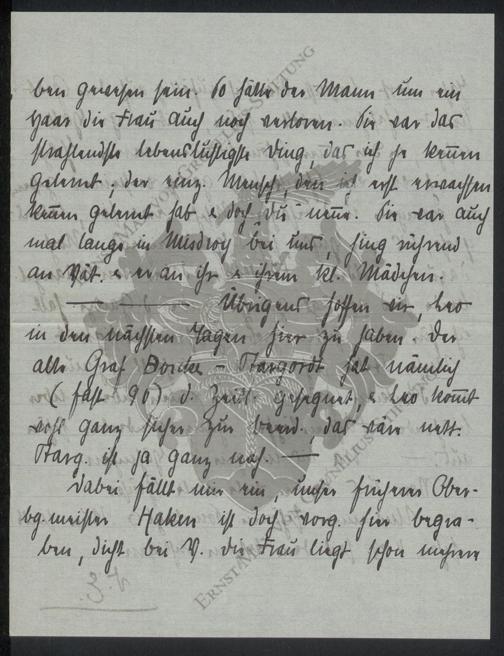 ben gewesen sein. So hätte der Mann um ein
Haar die Frau auch noch verloren. Sie war das
strahlendste lebenslustigste Ding, das ich je kennen
gelernt, der einz. Mensch, den ich erst erwachsen
kennen gelernt hab & doch "Du" nenne. Sie war auch
mal lange in Misdroy bei uns, hing rührend
an Vät. & er an ihr & ihrem kl. Mädchen.
— — — Übrigens hoffen wir, Leo
in den nächsten Tagen hier zu haben. Der
alte Graf Borcke-Stargordt hat nämlich
(fast 90) d. Zeitl. gesegnet, & Leo kommt
wohl ganz sicher zur Beerd. das wäre nett.
Starg. ist ja ganz nah. —
Dabei fällt mir ein, unser früherer Ober-
bg.meister Haken ist doch vorg. hier begra-
ben, dicht bei V. die Frau liegt schon mehrere
ERNST MAX VON GRUNELIUS-STIFTUNG
ERNST MAX VON GRUNELIUS-STIFTUNG